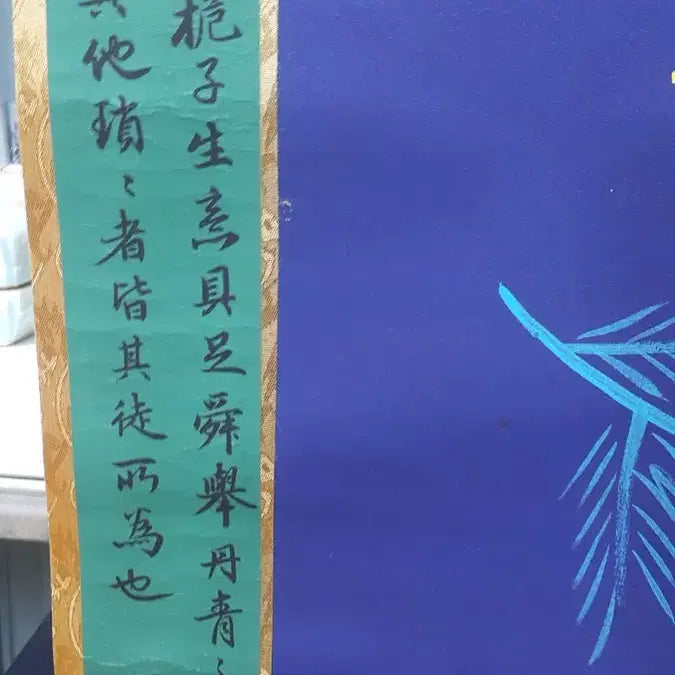 梔子生意具足舜舉丹青〻
其他瑣〻者皆其徒所為也